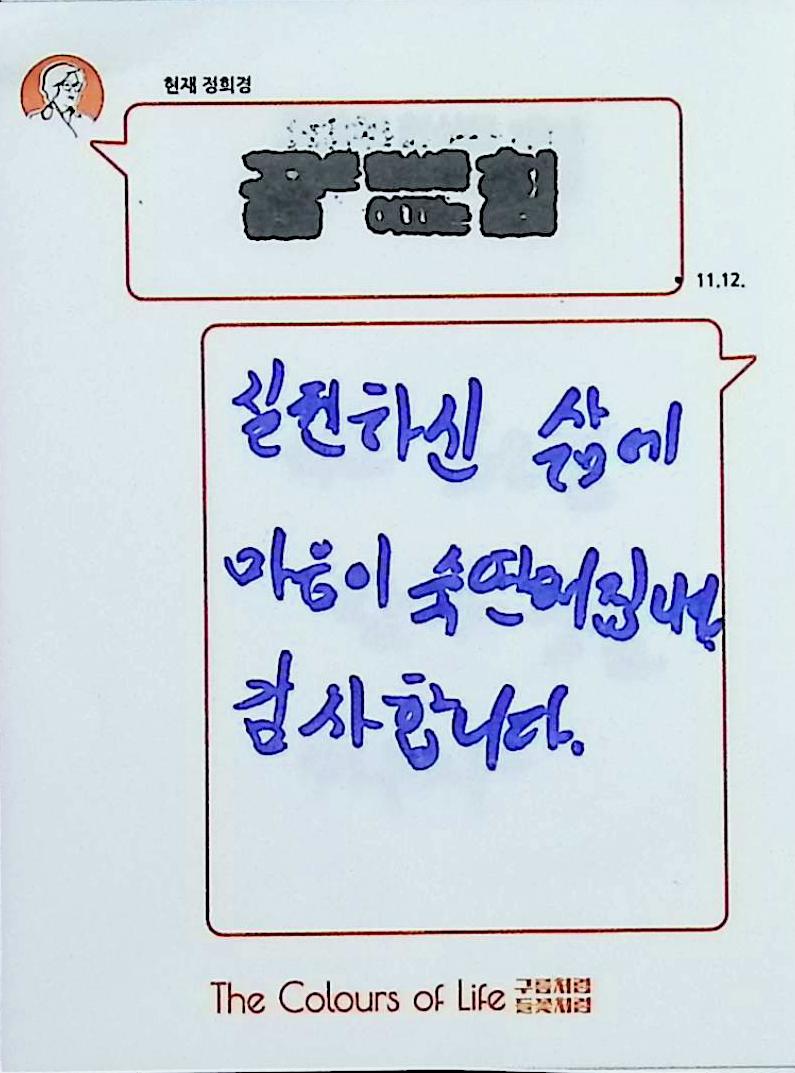 현재 정희경
11.12.
실천하신 삶에
마음이 숙연해집니다.
감사합니다.
The Colours of Life 구름처럼
들꽃처럼